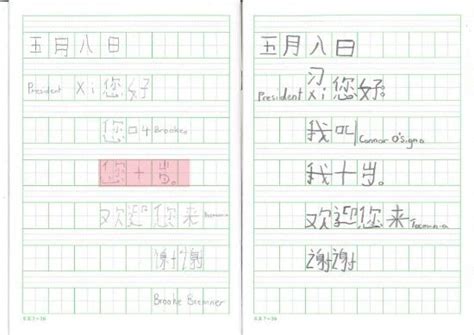 五月八日
President Xi 您好
您叫 Brooke
您十岁。
欢迎您来 Tacoma
谢谢
Brooke Bremner
五月八日
习
President Xi 您好。
我叫 Connor O'Signa
我十岁。
欢迎您来 Tacoma
谢谢